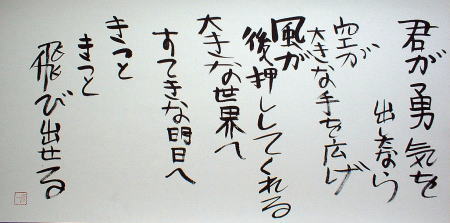 君が勇気を
出したなら
空が
大きな手を広げ
風が
後押ししてくれる
大きな世界へ
すてきな明日へ
きっと
きっと
飛び出せる